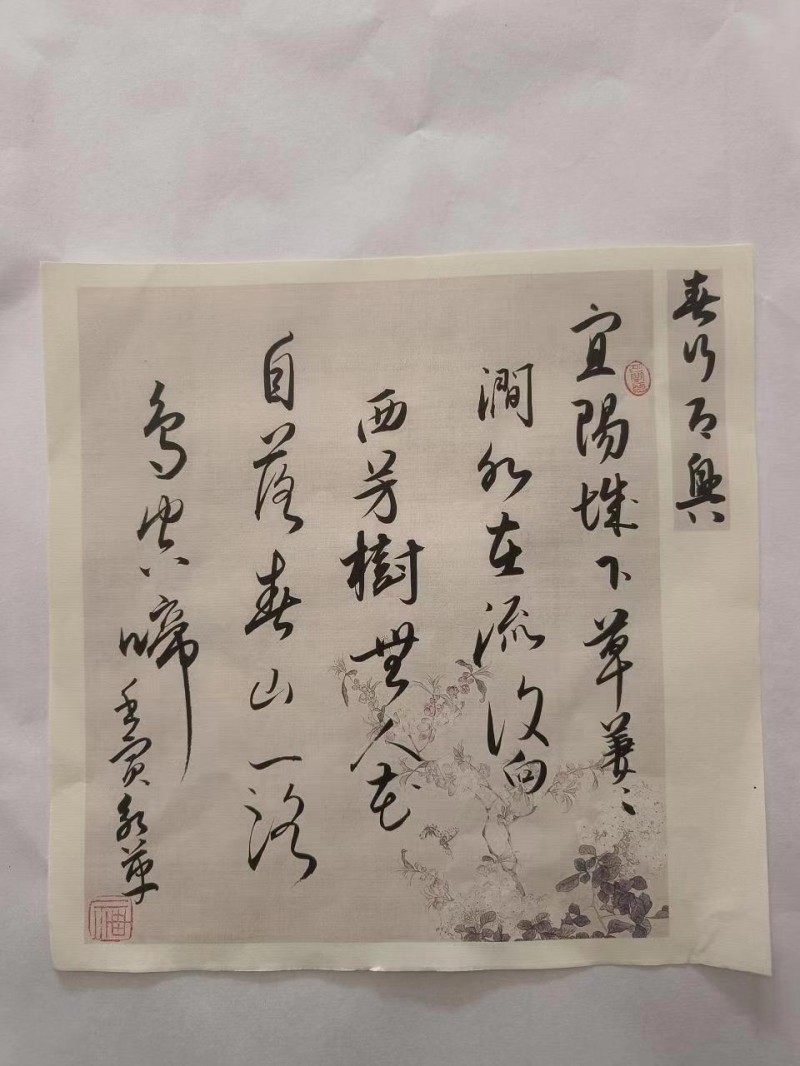 春行即興
宜陽城下草萋々
澗水東流復向
西芳樹無人花
自落春山一路
鳥空啼
壬寅